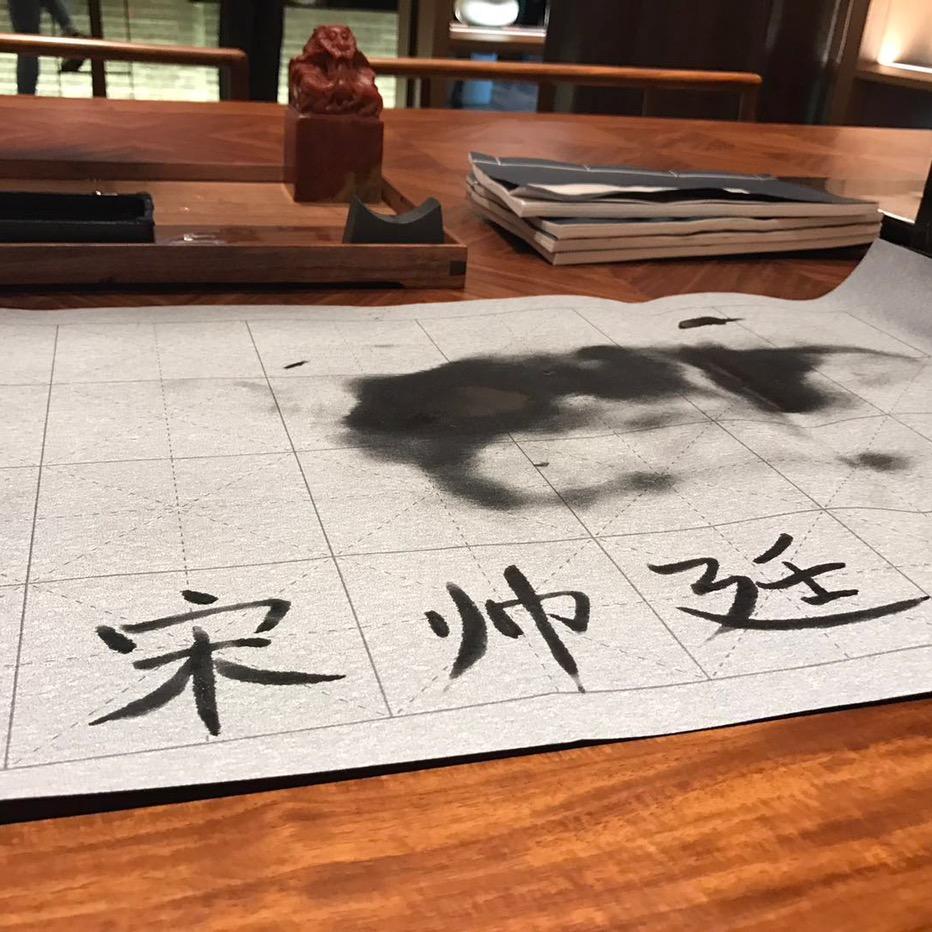 宋帅廷